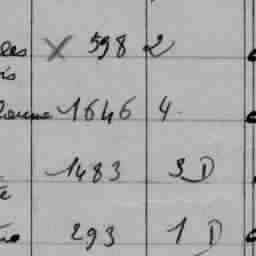 les X 598 2
is
1646 4
1483 3 D
te
293 1 D